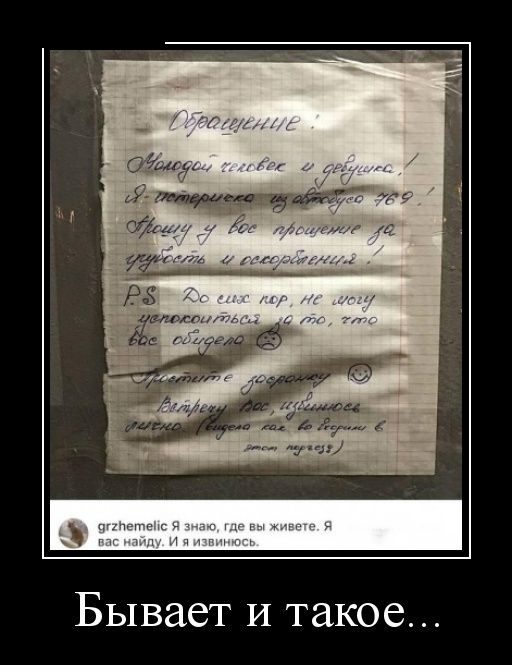 Обращение:
Молодой человек и девушка!
Я - истеричка из автобуса 769!
Прошу у вас прощение за
грубость и оскорбления!
P.S До сих пор, не могу
успокоиться за то, что
вас обидела
Простите засранку
Встречу Вас, извинюсь
лично (видела как вы входили в
этот подъезд)
grzhemelic Я знаю, где вы живете. Я
вас найду. И я извинюсь.
Бывает и такое...